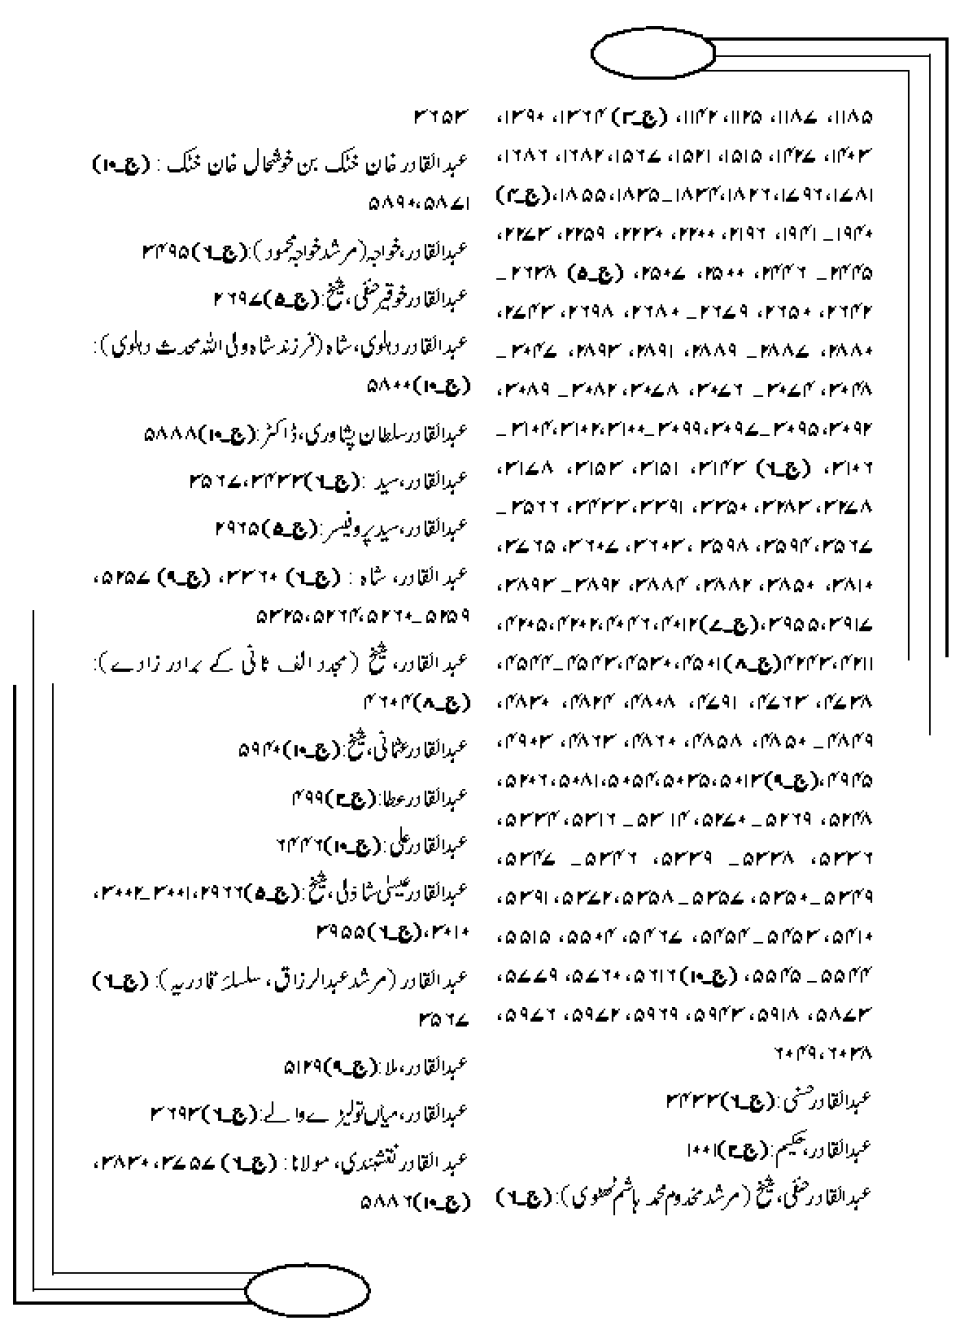 ۱۱۸۵، ۱۱۸۷، ۱۱۲۵، ۱۱۴۲، (ج_۳) ۱۳۶۴، ۱۳۹۰،
۱۴۰۳، ۱۴۲۷، ۱۵۱۵، ۱۵۲۱، ۱۵۶۷، ۱۶۸۲، ۱۶۸۶،
۱۷۸۱، ۱۷۹۶، ۱۸۲۶، ۱۸۳۴_۱۸۳۵، ۱۸۵۵، (ج_۴)
۱۹۴۰_ ۱۹۴۱، ۲۱۹۶، ۲۲۰۰، ۲۲۳۰، ۲۲۵۹، ۲۲۷۳،
۲۴۴۵_ ۲۴۴۶، ۲۵۰۰، ۲۵۰۷، (ج_۵) ۲۶۳۸_
۲۶۴۲، ۲۶۵۰، ۲۶۷۹_ ۲۶۸۰، ۲۶۹۸، ۲۷۴۳،
۲۸۸۰، ۲۸۸۷_ ۲۸۸۹، ۲۸۹۱، ۲۸۹۳، ۳۰۴۷_
۳۰۴۸، ۳۰۷۴_ ۳۰۷۶، ۳۰۷۸، ۳۰۸۲_ ۳۰۸۹،
۳۰۹۲، ۳۰۹۵_۳۰۹۷، ۳۰۹۹_۳۱۰۰، ۳۱۰۲، ۳۱۰۴_
۳۱۰۶، (ج_۶) ۳۱۴۳، ۳۱۵۱، ۳۱۵۳، ۳۱۷۸،
۳۲۷۸، ۳۲۸۳، ۳۳۵۰، ۳۳۹۱، ۳۴۳۳، ۳۵۶۶_
۳۵۶۷، ۳۵۹۴، ۳۵۹۸، ۳۶۰۳، ۳۶۰۷، ۳۷۶۵،
۳۸۱۰، ۳۸۵۰، ۳۸۸۲، ۳۸۸۴، ۳۸۹۲_ ۳۸۹۳،
۳۹۱۷، ۳۹۵۵، (ج_۷)۴۰۱۲، ۴۰۴۶، ۴۲۰۲، ۴۲۰۵،
۴۲۱۱، ۴۲۴۳(ج_۸)۴۵۰۱، ۴۵۳۰، ۴۵۴۳_۴۵۴۴،
۴۷۳۸، ۴۷۶۳، ۴۷۹۱، ۴۸۰۸، ۴۸۲۴، ۴۸۳۰،
۴۸۴۹_ ۴۸۵۰، ۴۸۵۸، ۴۸۶۰، ۴۸۶۳، ۴۹۰۳،
۴۹۴۵، (ج_۹)۵۰۱۳، ۵۰۳۵، ۵۰۵۴، ۵۰۸۱، ۵۲۰۶،
۵۲۴۸، ۵۲۶۹_ ۵۲۷۰، ۵۳۱۴_ ۵۳۱۶، ۵۳۳۴،
۵۳۳۶، ۵۳۳۸_ ۵۳۳۹، ۵۳۴۶_ ۵۳۴۷،
۵۳۴۹_۵۳۵۰، ۵۳۵۷_۵۳۵۸، ۵۳۷۲، ۵۳۹۱،
۵۴۱۰، ۵۴۵۳_۵۴۵۴، ۵۴۶۷، ۵۵۰۴، ۵۵۱۵،
۵۵۴۴_ ۵۵۴۵، (ج_۱۰)۵۶۱۶، ۵۷۶۰، ۵۷۷۹،
۵۸۷۳، ۵۹۱۸، ۵۹۴۳، ۵۹۶۹، ۵۹۷۲، ۵۹۷۶،
۶۰۳۸، ۶۰۴۹
عبدالقادر حسنی: (ج_۶)۳۴۳۳
عبدالقادر، حکیم: (ج_۲)۱۰۰۱
عبدالقادر حنفی، شیخ (مرشد مخدوم محمد ہاشم ٹھٹھوی): (ج_۶)
۳۶۵۳
عبدالقادر خان خٹک بن خوشحال خان خٹک : (ج_۱۰)
۵۸۷۱، ۵۸۹۰
عبدالقادر، خواجہ (مرشد خواجہ محمود): (ج_۶)۳۴۹۵
عبدالقادر خوقیر حنفی، شیخ: (ج_۵)۲۶۹۷
عبدالقادر دہلوی، شاہ (فرزند شاہ ولی اللہ محدث دہلوی):
(ج_۱۰)۵۸۰۰
عبدالقادر سلطان پشاوری، ڈاکٹر: (ج_۱۰)۵۸۸۸
عبدالقادر، سید : (ج_۶)۳۴۳۳، ۳۵۶۷
عبدالقادر، سید پروفیسر: (ج_۵)۲۹۶۵
عبدالقادر، شاہ : (ج_۶) ۳۳۶۰، (ج_۹) ۵۲۵۷،
۵۲۵۹_۵۲۶۰، ۵۲۶۴، ۵۳۲۵
عبدالقادر، شیخ (مجدد الف ثانی کے برادر زادے):
(ج_۸)۴۶۰۴
عبدالقادر عثمانی، شیخ: (ج_۱۰)۵۹۴۰
عبدالقادر عطا: (ج_۲)۴۹۹
عبدالقادر علی: (ج_۱۰)۶۴۴۶
عبدالقادر عیسیٰ شاذلی، شیخ: (ج_۵)۲۹۶۶، ۳۰۰۱_۳۰۰۲،
۳۰۱۰، (ج_۶)۳۹۵۵
عبدالقادر (مرشد عبدالرزاق، سلسلہ قادریہ): (ج_۶)
۳۵۶۷
عبدالقادر، ملا: (ج_۹)۵۱۲۹
عبدالقادر، میاں ٹولیڑے والے: (ج_۶)۳۶۹۳
عبدالقادر نقشبندی، مولانا: (ج_۶) ۳۷۵۷، ۳۸۳۰،
(ج_۱۰)۵۸۸۶